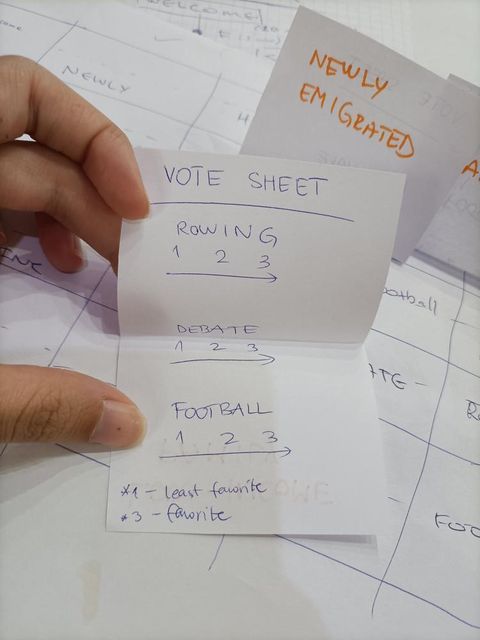 WELCOME
NEWLY
NEWLY
EMIGRATED
VOTE SHEET
ROWING
1 2 3
DEBATE
1 2 3
FOOTBALL
1 2 3
*1 - least favorite
*3 - favorite
ootball
ATE -
FOO